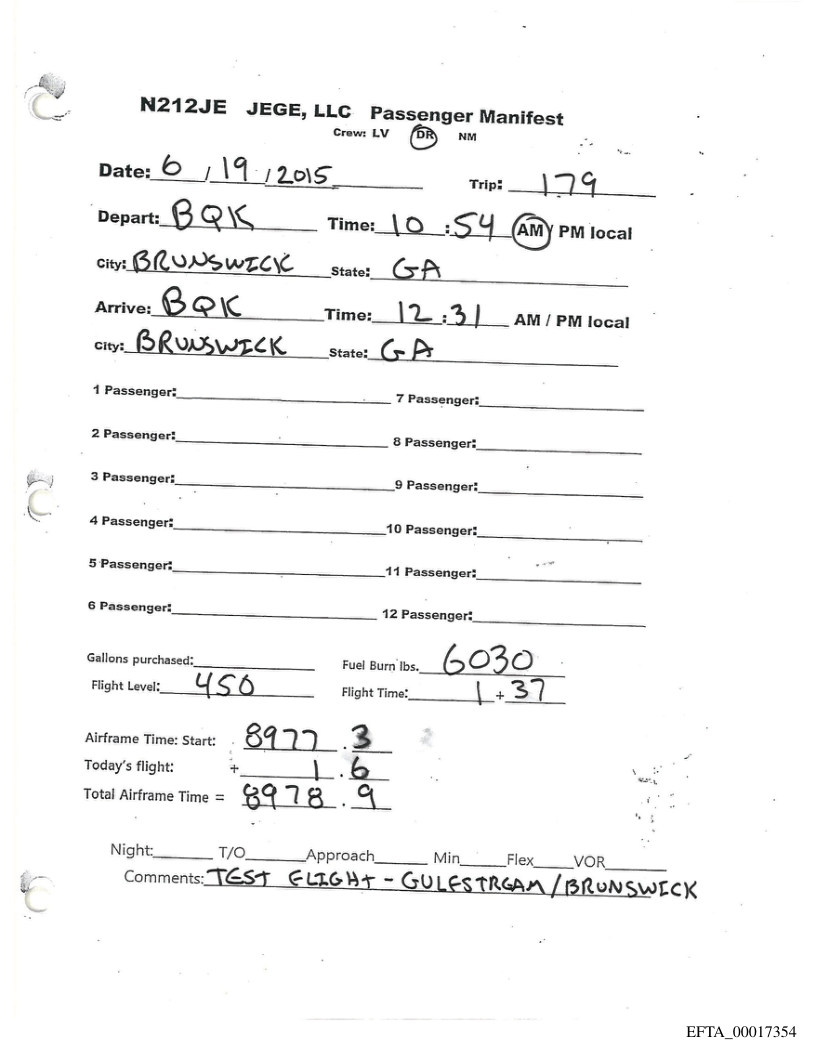 N212JE JEGE, LLC Passenger Manifest
Crew: LV DR NM
Date: 6 / 19 / 2015 Trip: 179
Depart: BQK Time: 10 : 54 AM / PM local
City: BRUNSWICK State: GA
Arrive: BQK Time: 12 : 31 AM / PM local
City: BRUNSWICK State: GA
1 Passenger: 7 Passenger:
2 Passenger: 8 Passenger:
3 Passenger: 9 Passenger:
4 Passenger: 10 Passenger:
5 Passenger: 11 Passenger:
6 Passenger: 12 Passenger:
Gallons purchased: Fuel Burn lbs. 6030
Flight Level: 450 Flight Time: 1 + 37
Airframe Time: Start: 8977 . 3
Today's flight: + 1 . 6
Total Airframe Time = 8978 . 9
Night: T/O Approach Min Flex VOR
Comments: TEST FLIGHT - GULFSTREAM / BRUNSWICK
EFTA_00017354